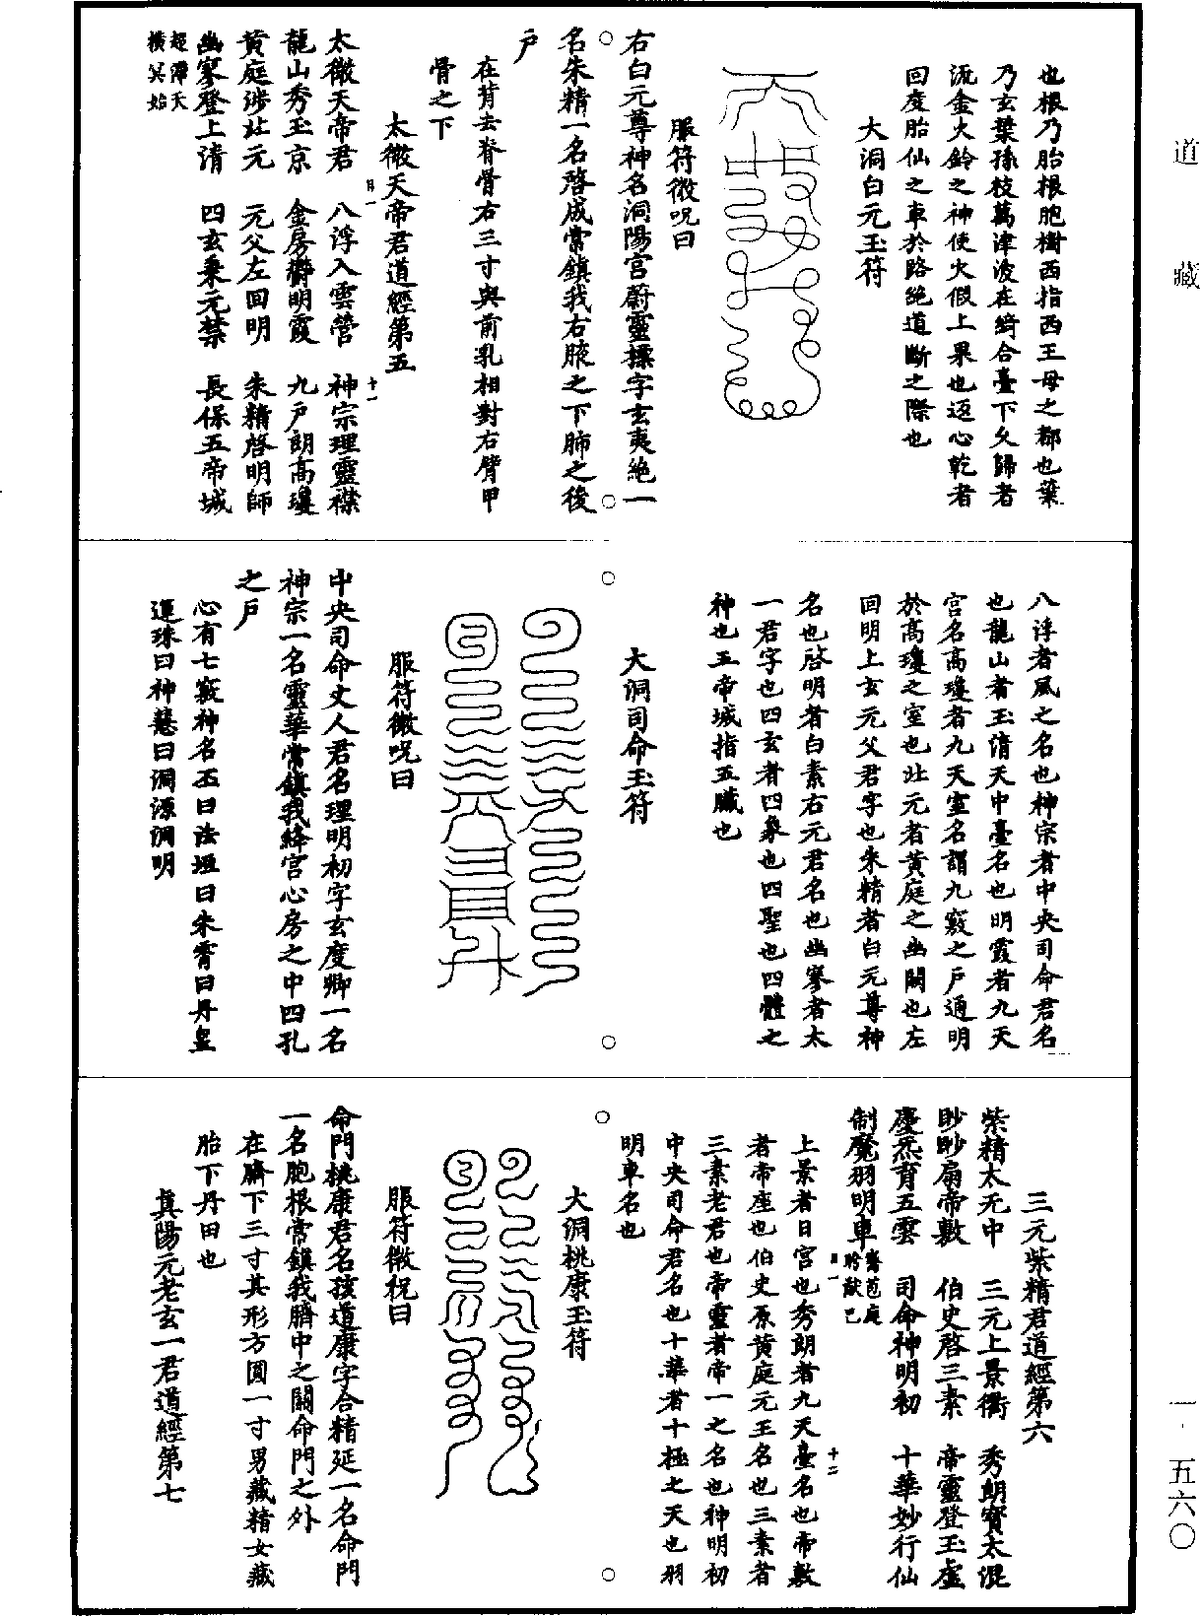 道藏
也根乃胎根胞樹西指西王母之都也葉
乃玄葉孫枝萬津波在綺合臺下夂歸者
流金火鈴之神使火假上果也迈心乾者
回度胎仙之車於路絶道斷之際也
大洞白元玉符
服符微呪曰
右白元尊神名洞陽宮蔚靈摽字玄夷絶一
名朱精一名啓成常鎮我右腋之下肺之後
户
在背去脊骨右三寸與前乳相對右臂甲
骨之下
太微天帝君道經第五
太微天帝君 八浮入雲營 神宗理靈襟
龍山秀玉京 金房欝明霞 九户朗高瓊
黄庭涉北元 元父左回明 朱精啓明師
幽寥登上清 四玄乘元禁 長保五帝城
超潭天
横冥始
八浮者風之名也神宗者中央司命君名
也龍山者玉清天中臺名也明霞者九天
宮名高瓊者九天室名謂九竅之户通明
於高瓊之室也北元者黄庭之幽關也左
回明上玄元父君字也朱精者白元尊神
名也啓明者白素右元君名也幽寥者太
一君字也四玄者四象也四聖也四體之
神也五帝城指五臟也
大洞司命玉符
服符微呪曰
中央司命丈人君名理明初字玄度卿一名
神宗一名靈華常鎮我絳宮心房之中四孔
之户
心有七竅神名丕曰法垣曰朱霄曰丹皇
運珠曰神慧曰洞源洞明
三元紫精君道經第六
紫精太无中 三元上景衢 秀朗寶太混
眇眇扇帝敷 伯史啓三素 帝靈登玉虚
慶炁育五雲 司命神明初 十華妙行仙
制魔羽明車
上景者日宮也秀朗者九天臺名也帝敷
者帝座也伯史原黄庭元王名也三素者
三素老君也帝靈者帝一之名也神明初
中央司命君名也十華者十極之天也羽
明車名也
大洞桃康玉符
服符微祝曰
命門桃康君名孩道康字合精延一名命門
一名胞根常鎮我臍中之關命門之外
在臍下三寸其形方圓一寸男藏精女藏
胎下丹田也
真陽元老玄一君道經第七
一·五六〇